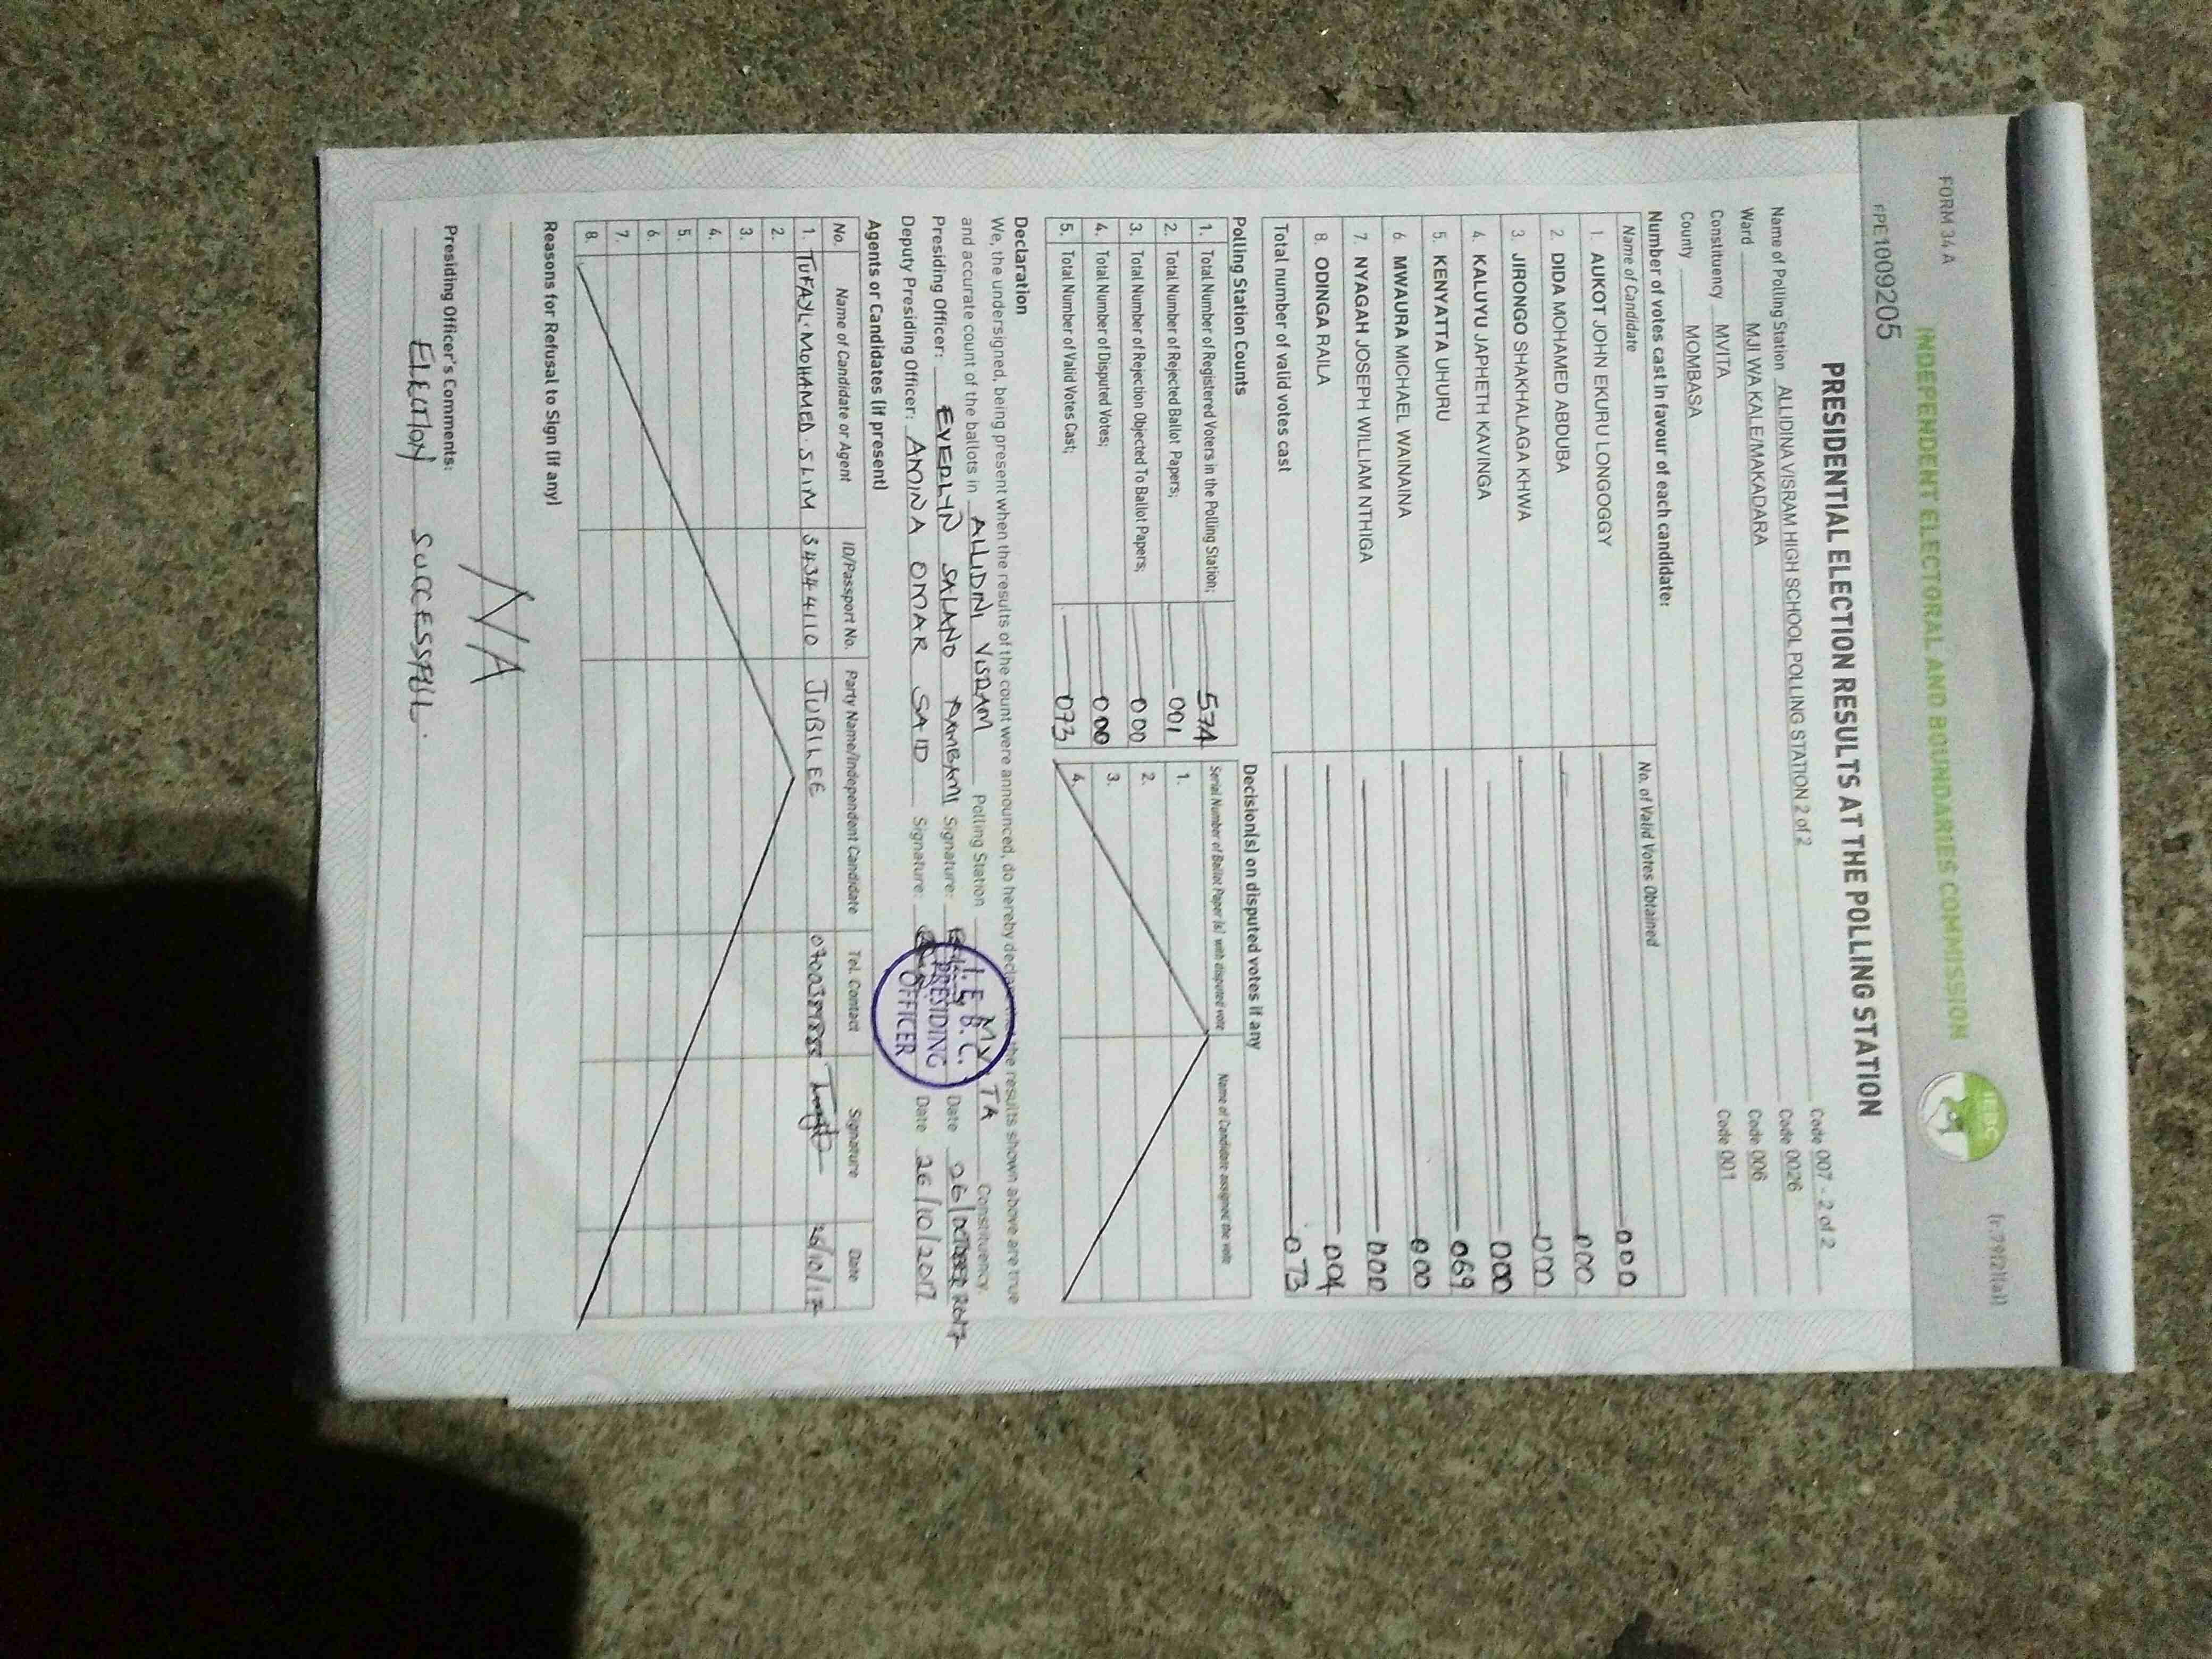 FORM 34 A
(r.79(2)(a))
INDEPENDENT ELECTORAL AND BOUNDARIES COMMISSION
IEBC
PPE1009205
PRESIDENTIAL ELECTION RESULTS AT THE POLLING STATION
Name of Polling Station ALLIDINA VISRAM HIGH SCHOOL POLLING STATION 2 of 2 Code 007 - 2 of 2
Ward MJI WA KALE/MAKADARA Code 0026
Constituency MVITA Code 006
County MOMBASA Code 001
Number of votes cast in favour of each candidate:
Name of Candidate No. of Valid Votes Obtained
1. AUKOT JOHN EKURU LONGOGGY 000
2. DIDA MOHAMED ABDUBA 000
3. JIRONGO SHAKHALAGA KHWA 000
4. KALUYU JAPHETH KAVINGA 000
5. KENYATTA UHURU 069
6. MWAURA MICHAEL WAINAINA 000
7. NYAGAH JOSEPH WILLIAM NTHIGA 000
8. ODINGA RAILA 004
Total number of valid votes cast 073
Polling Station Counts
1. Total Number of Registered Voters in the Polling Station; 574
2. Total Number of Rejected Ballot Papers; 001
3. Total Number of Rejection Objected To Ballot Papers; 000
4. Total Number of Disputed Votes; 000
5. Total Number of Valid Votes Cast; 073
Decision(s) on disputed votes if any
Serial Number of Ballot Paper (s) with disputed vote Name of Candidate assigned the vote
1.
2.
3.
4.
Declaration
We, the undersigned, being present when the results of the count were announced, do hereby declare that the results shown above are true
and accurate count of the ballots in ALLIDINI VISRAM Polling Station MVITA Constituency.
Presiding Officer: EVERLYN SALANO Signature: Date 26/OCTOBER 2017
Deputy Presiding Officer: AMINA OMAR SAID Signature: Date 26/10/2017
I.E.B.C. PRESIDING OFFICER
Agents or Candidates (if present)
No. Name of Candidate or Agent ID/Passport No. Party Name/Independent Candidate Tel. Contact Signature Date
1. TUFAYL MOHAMED SLIM 34344110 JUBILEE 26/10/17
2.
3.
4.
5.
6.
7.
8.
Reasons for Refusal to Sign (if any)
N/A
Presiding Officer's Comments:
ELECTION SUCCESSFULL.